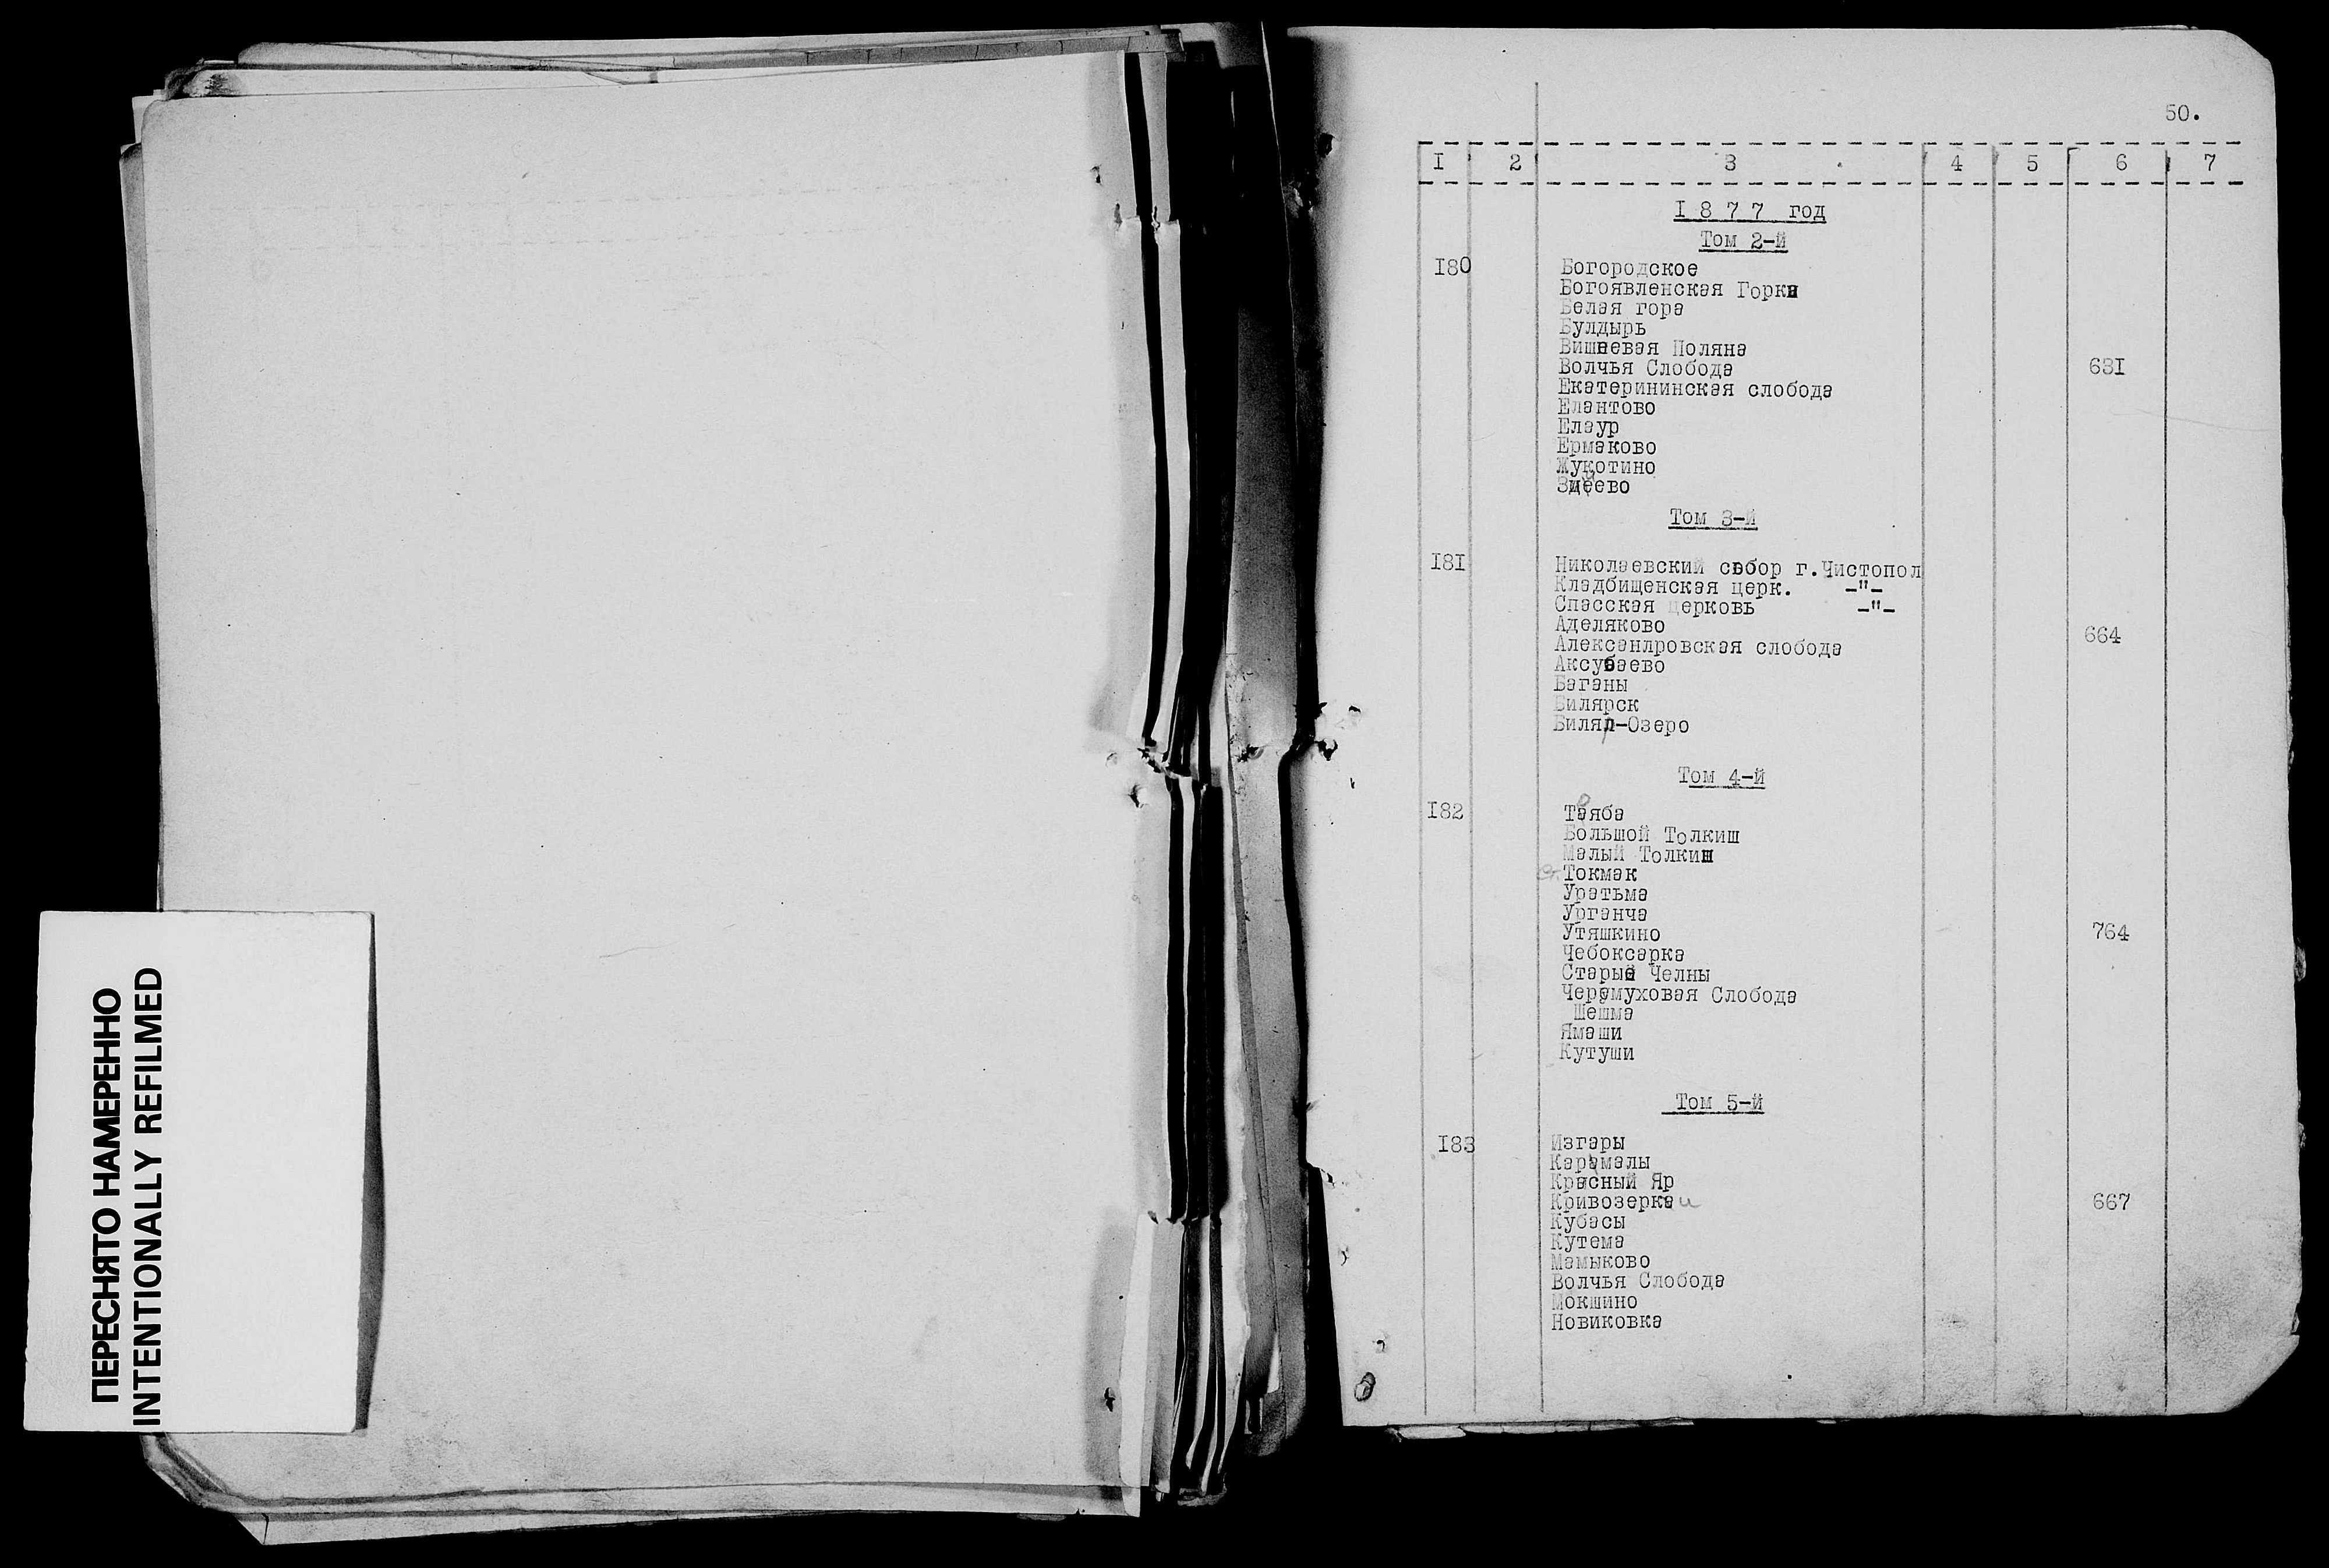 ПЕРЕСНЯТО НАМЕРЕННО
INTENTIONALLY REFILMED
50.
I 2 3 4 5 6 7
I 8 7 7 год
Том 2-й
I80 Богородское
Богоявленская Горка
Белая гора
Булдырь
Вишневая Поляна
Волчья Слобода 631
Екатерининская слобода
Елантово
Елаур
Ермаково
Жукотино
Том 3-й
I81 Николаевский собор г.Чистопол
Кладбищенская церк. -"-
Спасская церковь -"-
Аделяково
Александровская слобода 664
Аксубаево
Баганы
Билярск
Биляр-Озеро
Том 4-й
I82 Таяба
Большой Толкиш
Малый Толкиш
Ст. Токмак
Уратьма
Урганча
Утяшкино 764
Чебоксарка
Старые Челны
Черемуховая Слобода
Шешма
Ямаши
Кутуши
Том 5-й
I83 Изгары
Карамалы
Красный Яр
Кривозерки 667
Кубасы
Кутема
Мамыково
Волчья Слобода
Мокшино
Новиковка